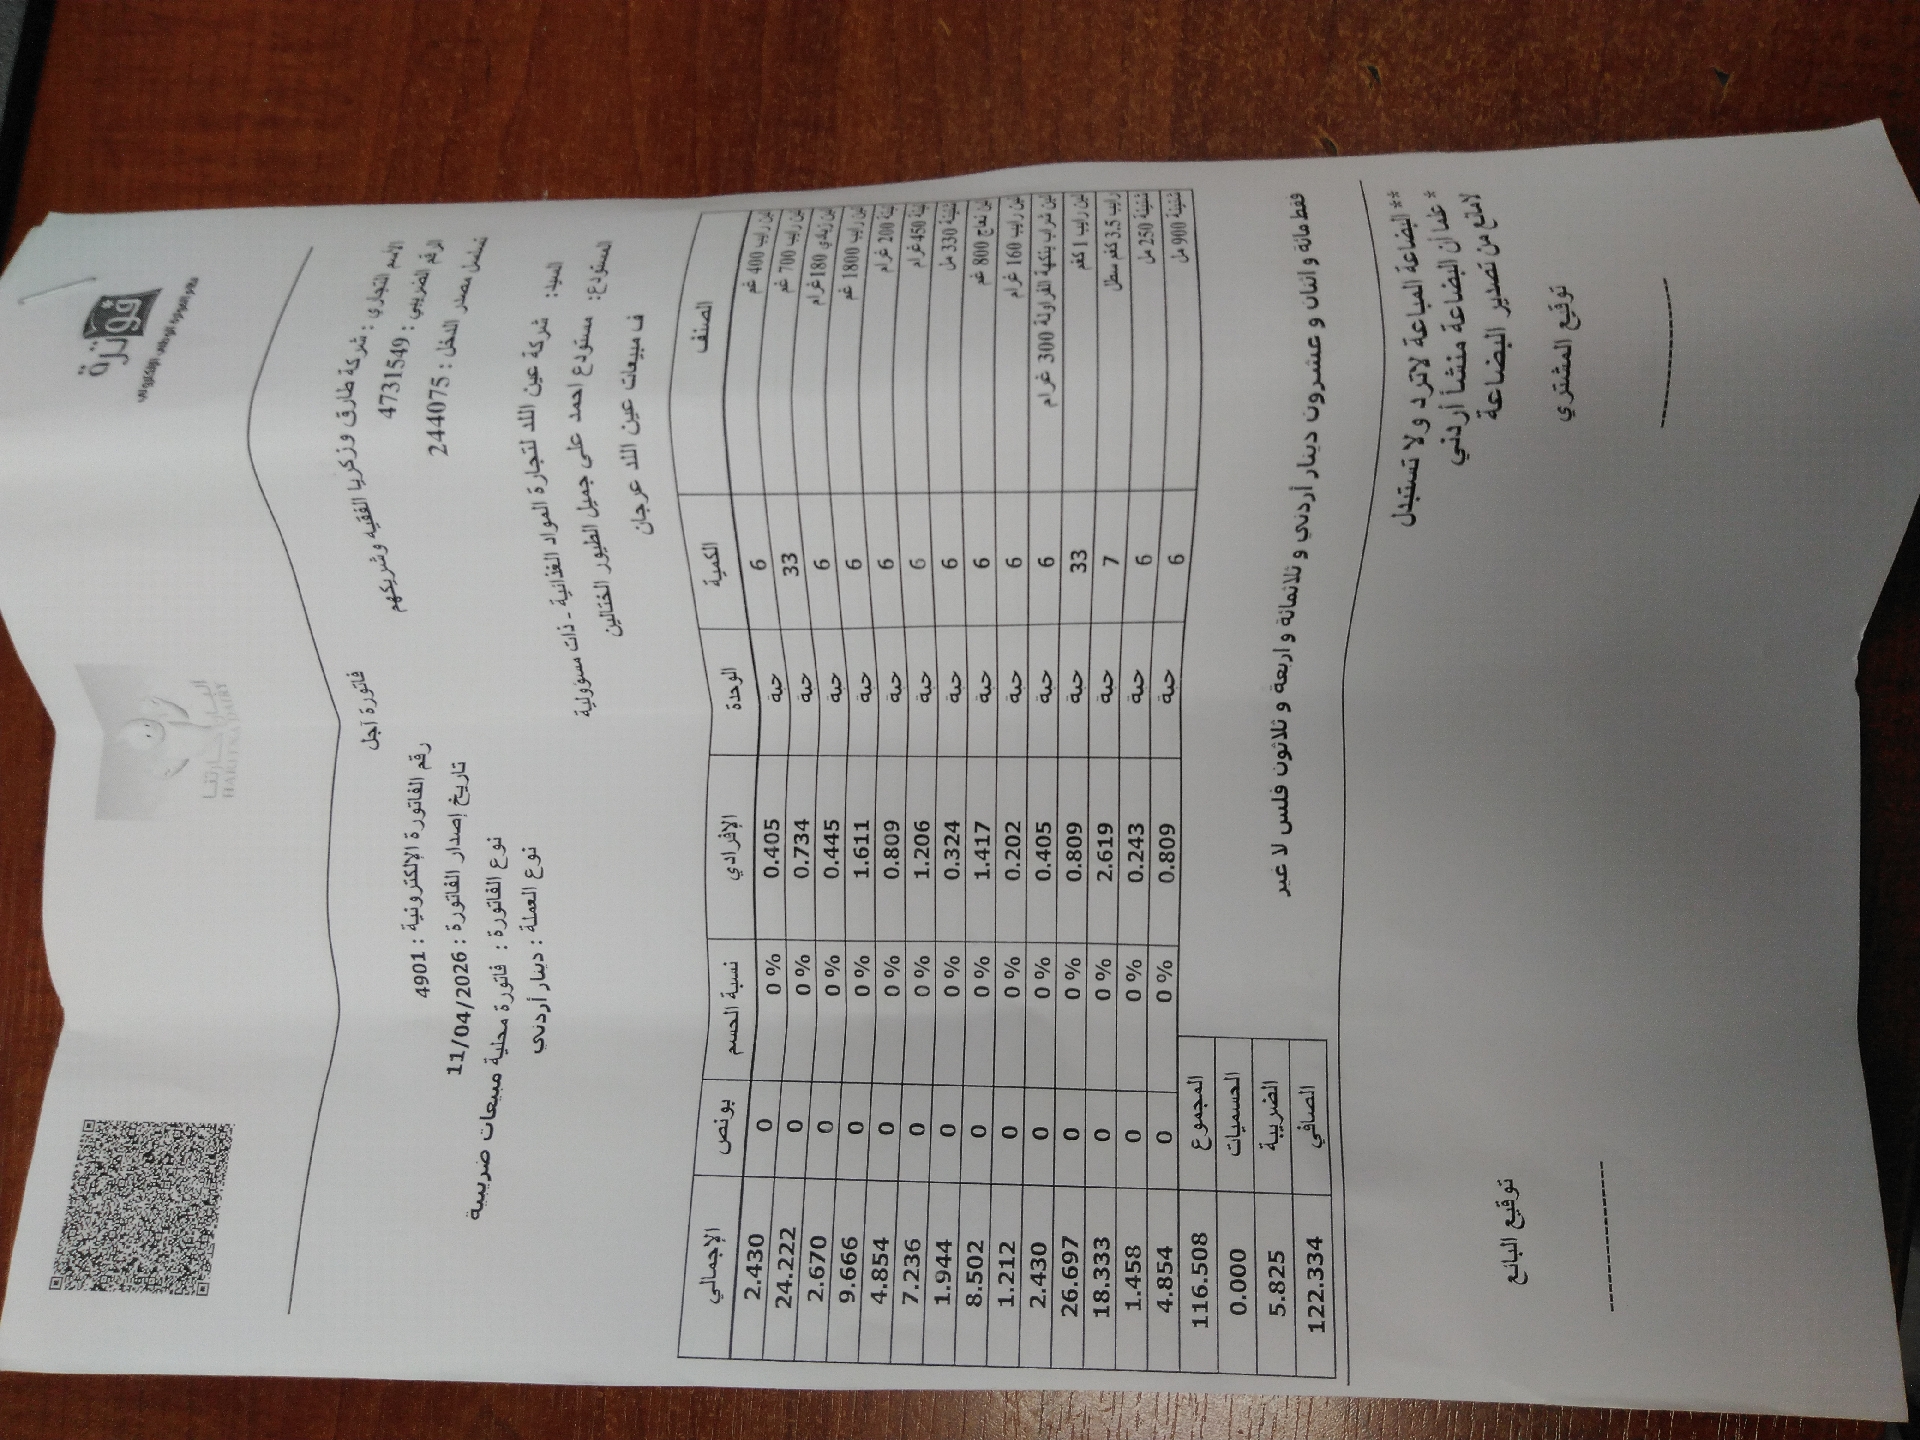 فوترة
نظام الفوترة الوطني الإلكتروني
البادية حارتنا
HARITNA DAIRY
فاتورة آجل
الاسم التجاري : شركة طارق وزكريا الفقيه وشريكهم
الرقم الضريبي : 4731549
تسلسل مصدر الدخل : 2444075
رقم الفاتورة الإلكترونية : 4901
تاريخ إصدار الفاتورة : 11/04/2026
نوع الفاتورة : فاتورة محلية مبيعات ضريبية
نوع العملة : دينار أردني
السيد: شركة عين اللد لتجارة المواد الغذائية - ذات مسؤولية
المستودع: مستودع احمد على جميل الطيور الختالين
ف مبيعات عين اللد عرجان
الصنف الكمية الوحدة الإفرادي نسبة الحسم بونص الإجمالي
لبن رايب 400 غم 6 حبة 0.405 0 % 0 2.430
لبن رايب 700 غم 33 حبة 0.734 0 % 0 24.222
لبن زبادي 180 غرام 6 حبة 0.445 0 % 0 2.670
لبن رايب 1800 غم 6 حبة 1.611 0 % 0 9.666
لبنة 200 غرام 6 حبة 0.809 0 % 0 4.854
لبنة 450 غرام 6 حبة 1.206 0 % 0 7.236
شنينة 330 مل 6 حبة 0.324 0 % 0 1.944
لبن نعاج 800 غم 6 حبة 1.417 0 % 0 8.502
لبن رايب 160 غرام 6 حبة 0.202 0 % 0 1.212
لبن شراب بنكهة الفراولة 300 غرام 6 حبة 0.405 0 % 0 2.430
لبن رايب 1 كغم 33 حبة 0.809 0 % 0 26.697
رايب 3.5 كغم سطل 7 حبة 2.619 0 % 0 18.333
شنينة 250 مل 6 حبة 0.243 0 % 0 1.458
شنينة 900 مل 6 حبة 0.809 0 % 0 4.854
المجموع 116.508
الحسميات 0.000
الضريبة 5.825
الصافي 122.334
فقط مائة و اثنان و عشرون دينار أردني و ثلاثمائة و اربعة و ثلاثون فلس لا غير
** البضاعة المباعة لاترد ولا تستبدل
* علما أن البضاعة منشأ أردني
لامانع من تصدير البضاعة
توقيع المشتري
توقيع البائع